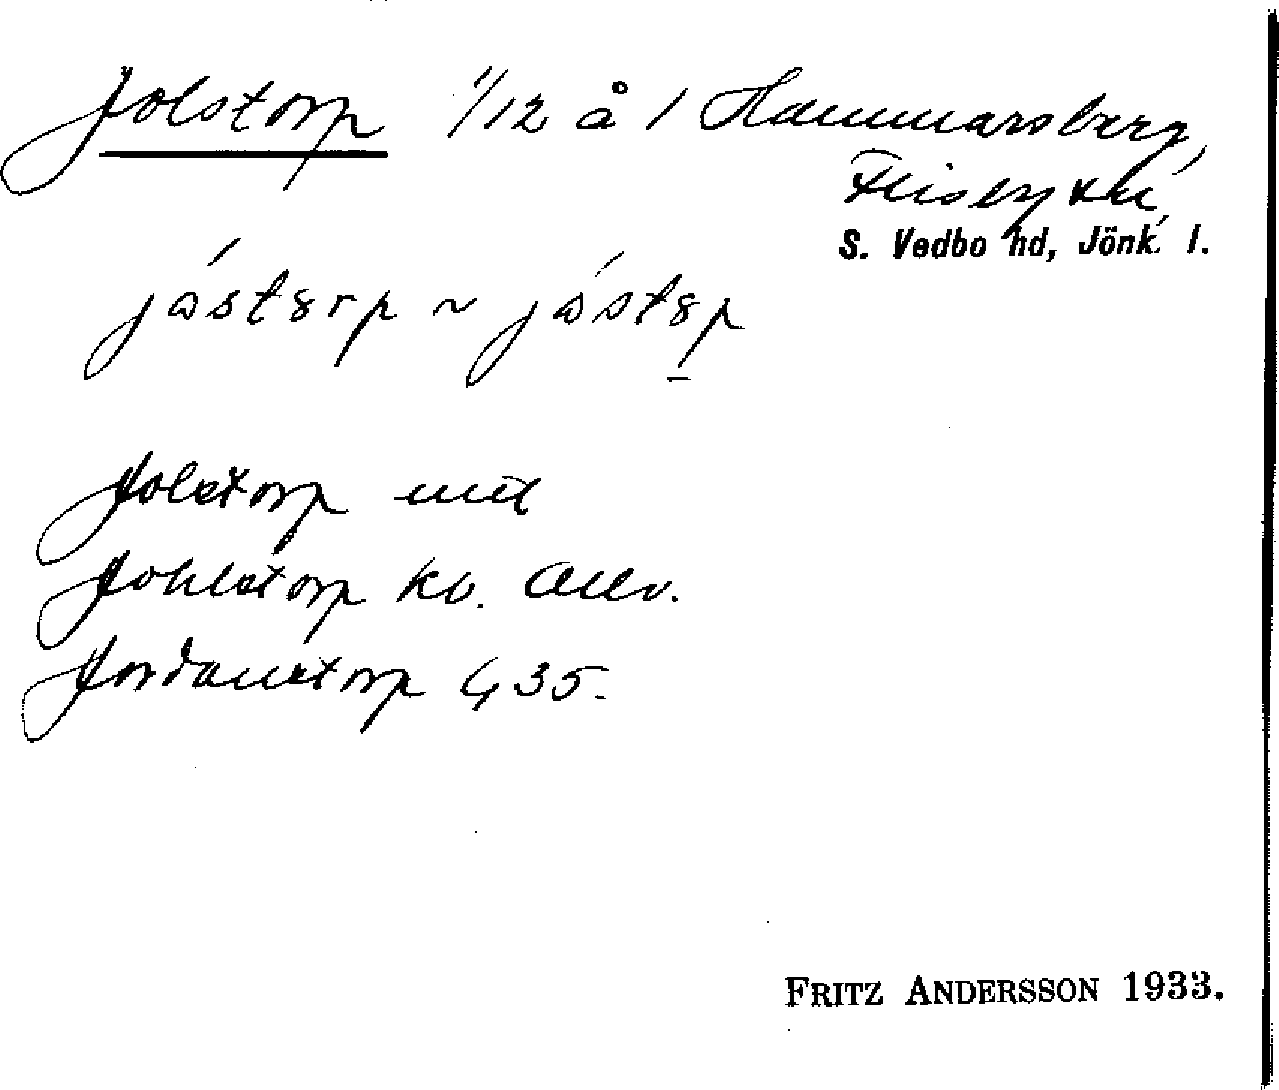 Jolstorp 1/12 å 1 Hammarsberg,
Flisby sn,
S. Vedbo hd, Jönk. l.
jóstȣrp ~ jóstȣp
Jolstorp
Johlstorp kv.
Jordanstorp G 35.
FRITZ ANDERSSON 1933.